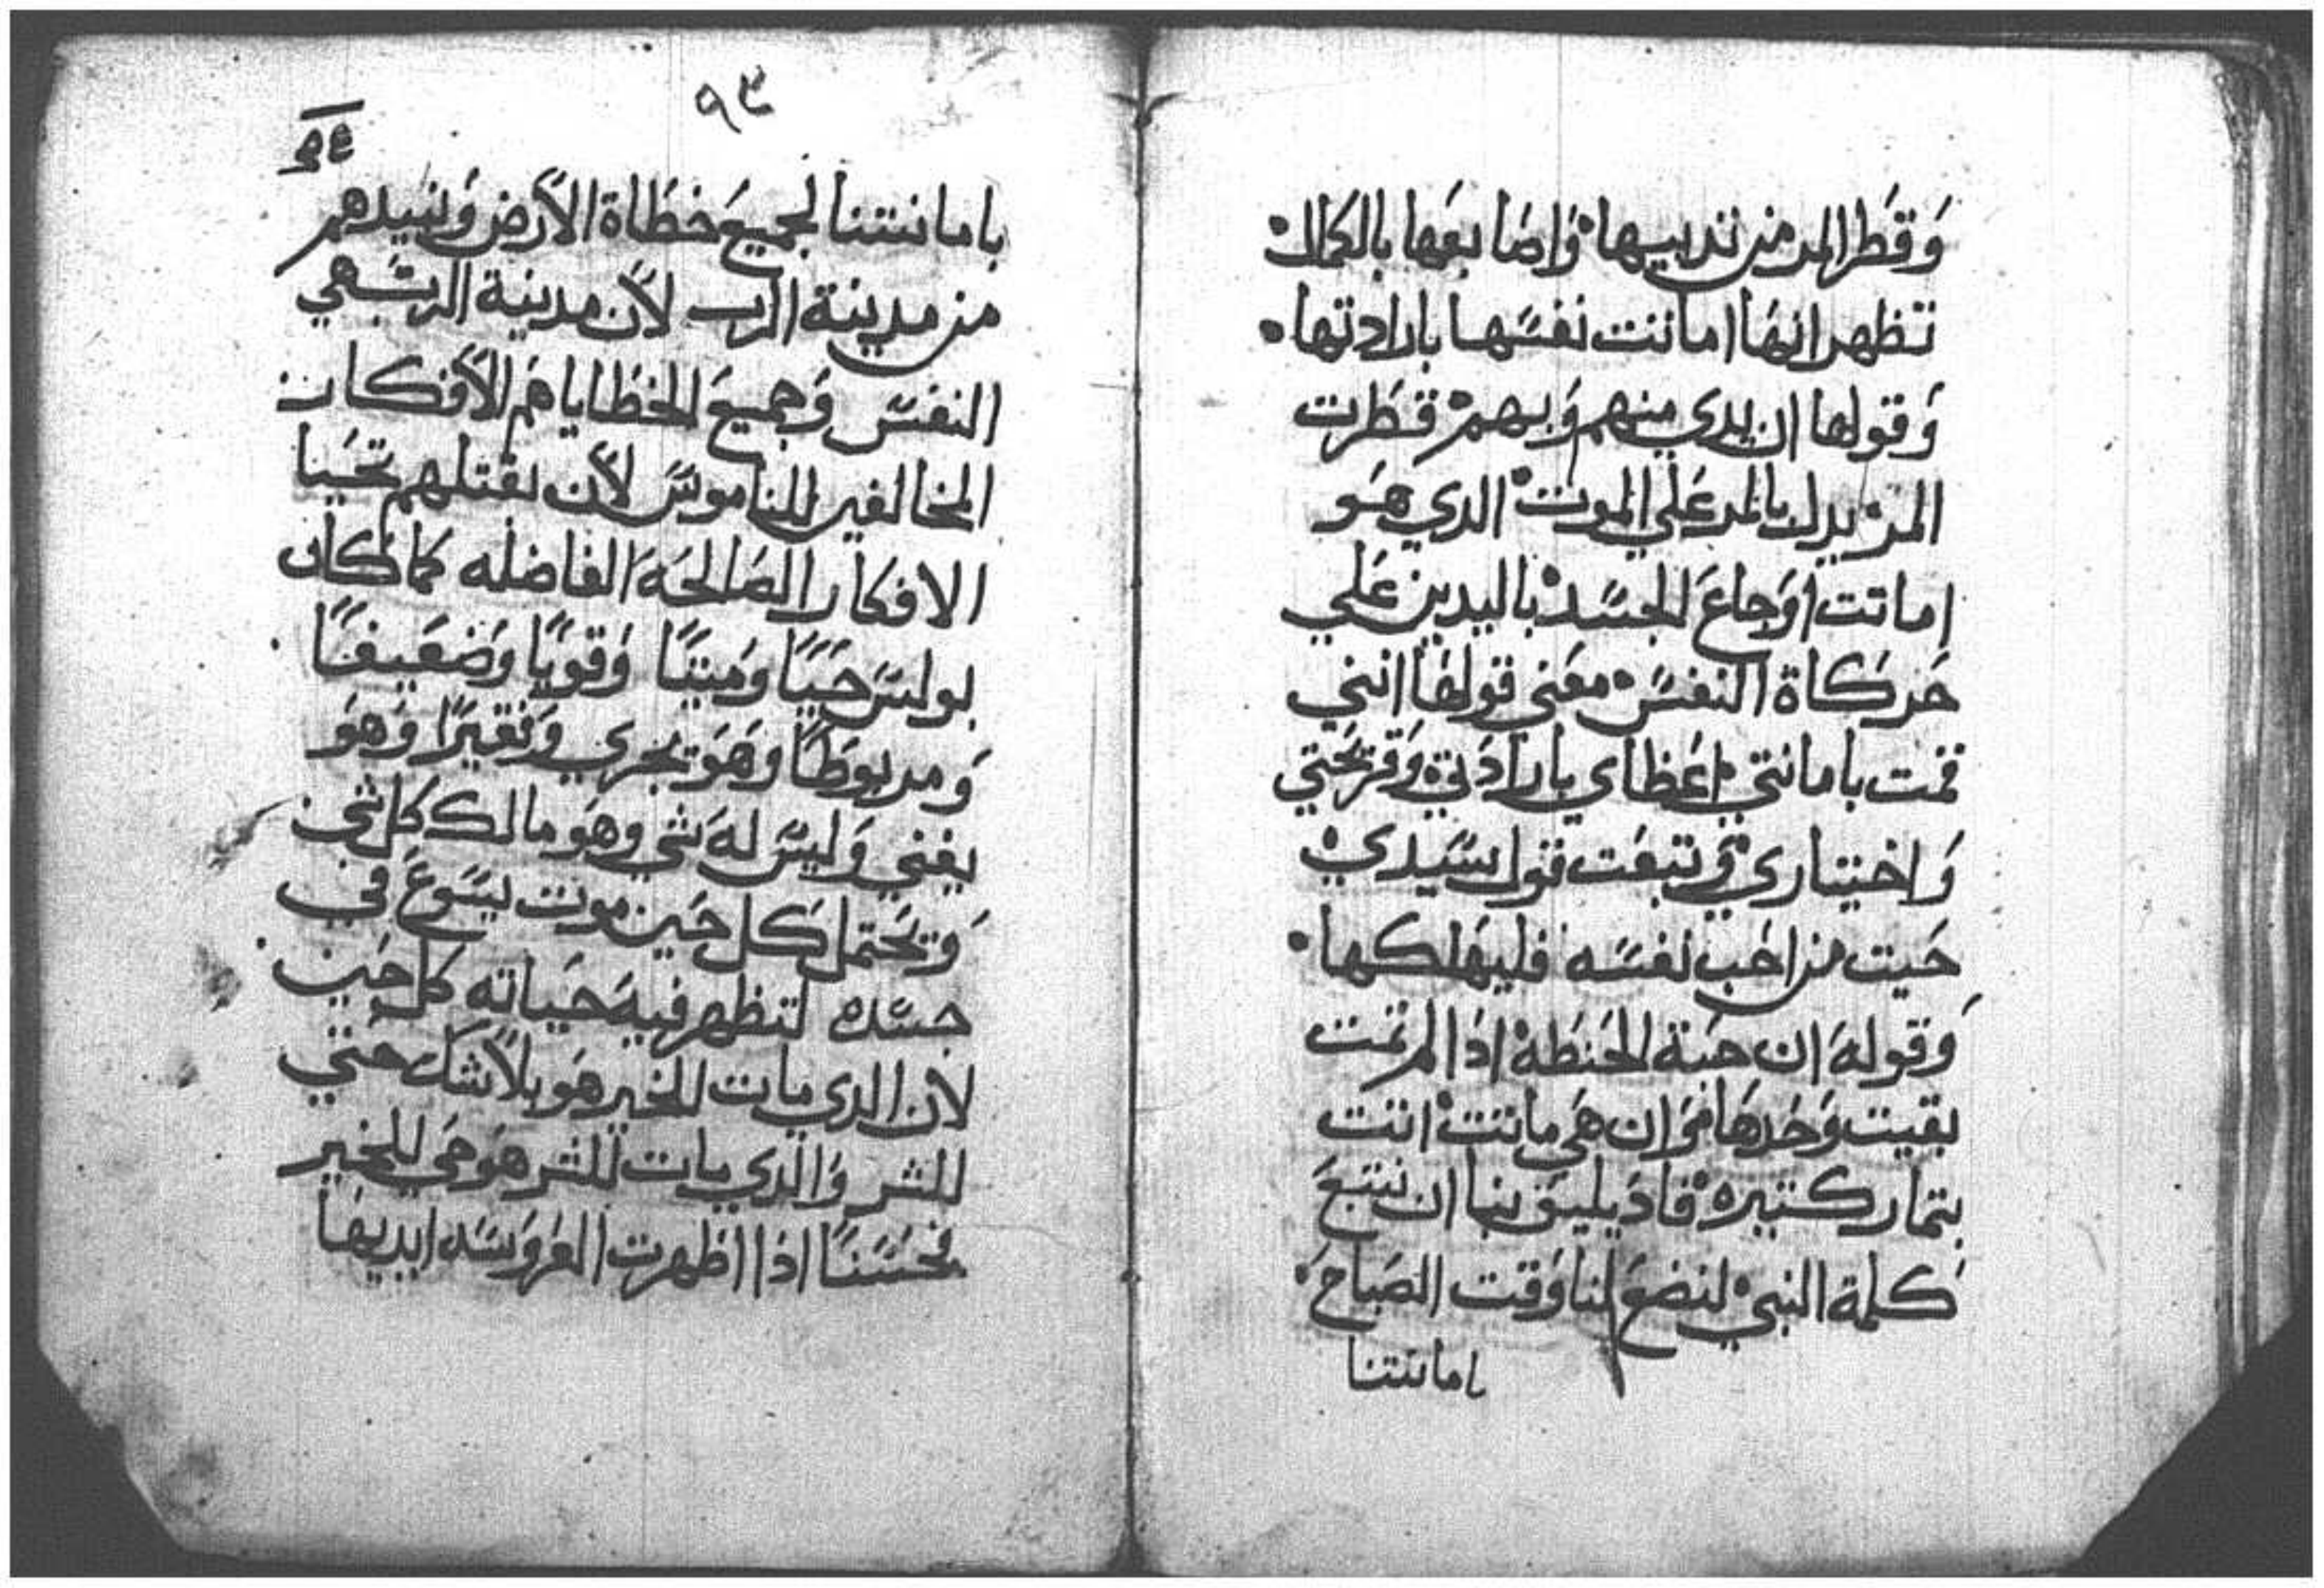 وَقَطَر المر من تدييها وَاصَابعَها بالكمال
تظهر انهَا اماتت نفسَها بارادتها
وَقولها ان يدي منهم وَبهم قَطَرت
المر يدل بالمر عَلي الموت الدي هَو
اماتت اوَجاعَ الجسَد باليدين عَلي
حَركاة النفسَ معَني قولهَا انني
قمت بامانتي اعَظاي بارادَتي وَقريحَتي
وَاختياري وَتبعَت قول سَيدي
حَيت من احَب نفسَه فليهَلكها
وَقولهَ ان حَبة الحَنطَه ادَا لم تمت
بقيت وَحَدهَا وَان هَي ماتت اتت
بتمار كتيره فادَ يليق بنا ان نتبعَ
كلمة النبي لنضعَ لنا وَقت الصَباحَ
امانتنا
٩٣
بامانتنا لجميعَ خطَاة الاَرض وَنبيدهم
من مدينة الرب لاَن مدينة الربَ هي
النفسَ وَجميعَ الخطَايا هَم الاَفكار
المخالفين للناموسَ لاَن بقتلهم تحَيا
الافكار الصَالحَة الفاضله كما كان
بولسَ حَيَاً وَميتاً وَقوياً وَضعَيفاً
وَمربوطَاً وَهَو يجري وَفقيراً وَهوَ
يغني وَليسَ لهَ شي وهوَ مالك كل شي
وَيحَتمل كل حَين موت يسَوعَ في
جسَده لتظهر فيهَ حَياته كل حَين
لان الدي مات للخير هَو بلاَشك حَي
للشر وَالدي مات للشر هَو حَي للخير
فحَسَناً اذا اظهرت العَروَسَه ايديهَا